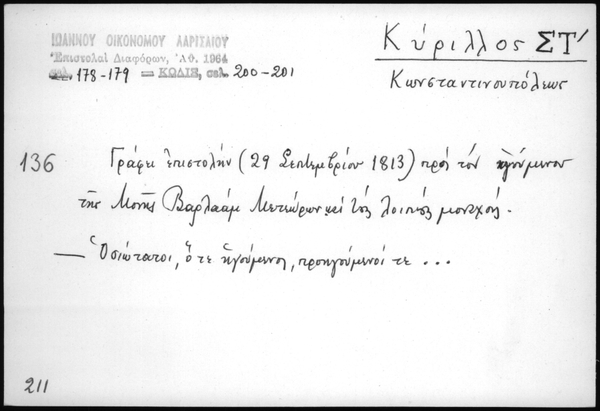 ΙΩΑΝΝΟΥ ΟΙΚΟΝΟΜΟΥ ΛΑΡΙΣΑΙΟΥ
Ἐπιστολαὶ Διαφόρων, Ἀθ. 1964
σελ. 178-179 — ΚΩΔΙΞ, σελ. 200-201
Κύριλλος ΣΤ'
Κωνσταντινουπόλεως
136
Γράφει ἐπιστολὴν (29 Σεπτεμβρίου 1813) πρὸς τὸν ἡγούμενον
τῆς Μονῆς Βαρλαὰμ Μετεώρων καὶ τοὺς λοιποὺς μοναχούς.
— Ὁσιώτατοι, ὅ τε ἡγούμενος, προηγούμενοί τε ...
211